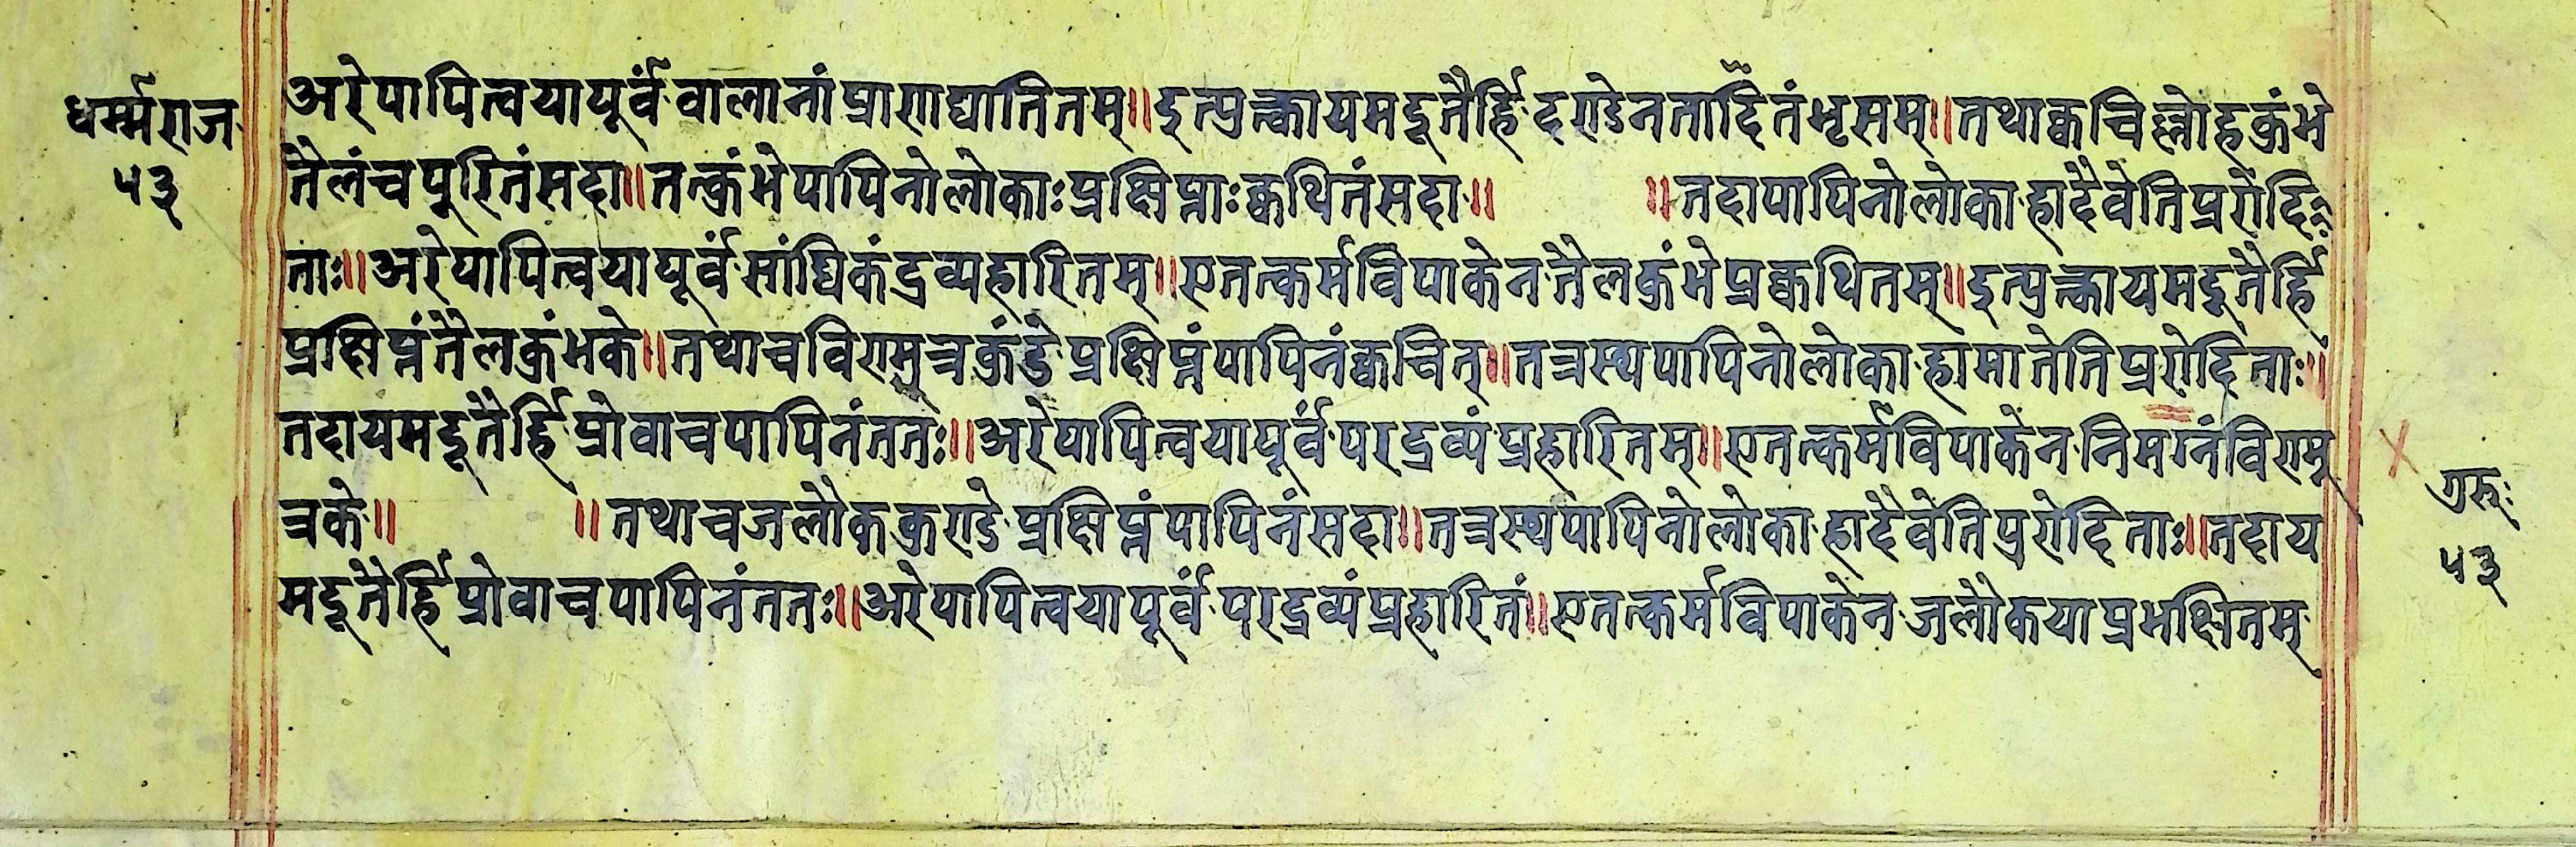 धर्म्मराज
५३
अरेपापित्वयापूर्वंवालानांप्राणाद्यातितम्॥इत्युत्क्वायमदूतैर्हिदण्डेनतादितंभृसम्॥तथाक्वचिल्लोहकुंभे
तैलंचपूरितंसदा॥तत्कुंभेपापिनोलोकाःप्रक्षिप्ताःक्वथितंसदा॥ ॥तदापापिनोलोकाहादैवेतिप्ररोदि
ताः॥अरेपापित्वयापूर्वंसांघिकंद्रव्यहारितम्॥एतत्कर्मविपाकेनतैलकुंभेप्रक्वथितम्॥इत्युत्क्वायमदूतैर्हि
प्रक्षिप्तंतैलकुंभके॥तथाचविण्मुत्रकुंडेप्रक्षिप्तंपापिनंक्वचित्॥तत्रस्थपापिनोलोकाहामातेतिप्ररोदिताः॥
तदायमदूतैर्हिप्रोवाचपापिनंततः॥अरेपापित्वयापूर्वंपरद्रव्यंप्रहारितम्॥एतत्कर्मविपाकेननिमग्नंविण्मू
त्रके॥ ॥तथाचजलौककुण्डेप्रक्षिप्तंपापिनंसदा॥तत्रस्थपापिनोलोकाहादैवेतिप्ररोदिताः॥तदाय
मदूतैर्हिप्रोवाचपापिनंततः॥अरेपापित्वयापूर्वंपरद्रव्यंप्रहारितं॥एतत्कर्मविपाकेनजलौकयाप्रभक्षितम्
गुरूः
५३